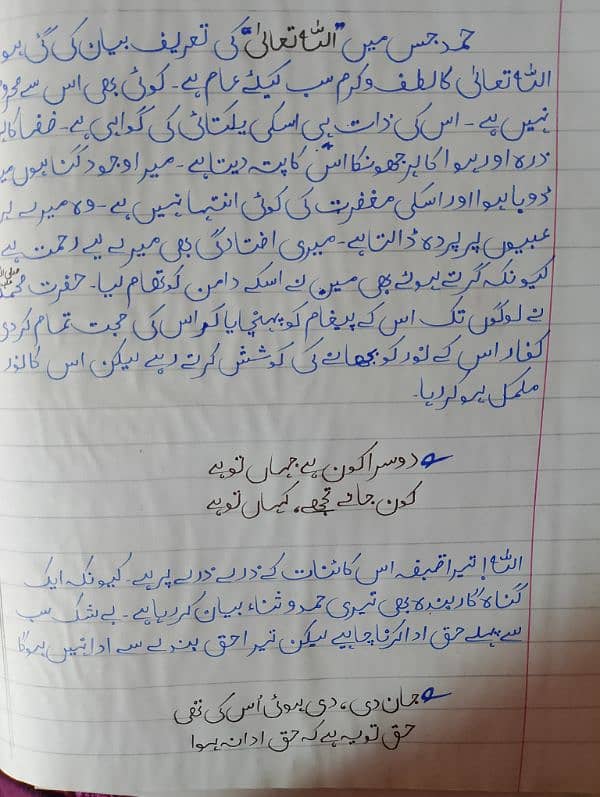 حمد جس میں "اللہ تعالیٰ" کی تعریف بیان کی گئی ہو
اللہ تعالیٰ کا لطف و کرم سب کیلئے عام ہے۔ کوئی بھی اس سے
نہیں ہے۔ اس کی ذات ہی اسکی یکتائی کی گواہی ہے۔ فضا کا ہر
ذرہ اور ہوا کا ہر جھونکا اس کا پتہ دیتا ہے۔ میرا وجود گناہوں میں
ڈوبا ہوا اور اسکی مغفرت کی کوئی انتہا نہیں ہے۔ وہ میرے
عیبوں پر پردہ ڈالتا ہے۔ میری افتادگی بھی میرے لیے رحمت ہے
کیونکہ گرتے ہوئے بھی میں نے اسکے دامن کو تھام لیا۔ حضرت محمد
نے لوگوں تک اس کے پیغام کو پہنچایا کر اس کی حجت تمام کر دی
کفار اس کے نور کو بجھانے کی کوشش کرتے رہے لیکن اس کا نور
مکمل ہو کر رہا۔
دوسرا کون ہے جہاں تو ہے
کون جانے تجھے، کہاں تو ہے
اللہ! تیرا قبضہ اس کائنات کے ذرے ذرے پر ہے۔ کیونکہ ایک
گناہ گار بندہ بھی تیری حمد و ثناء بیان کر رہا ہے۔ بے شک سب
سے پہلے حق ادا کرنا چاہیے لیکن تیرا حق بندے سے ادا نہیں ہوگا
جان دی، دی ہوئی اُس کی تھی
حق تو یہ ہے کہ حق ادا نہ ہوا